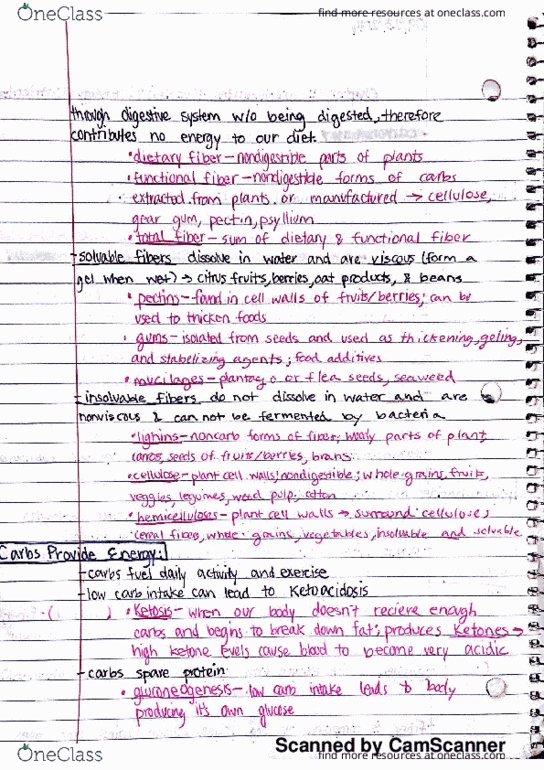 OneClass
find more resources at oneclass.com
though digestive system w/o being digested, therefore
contributes no energy to our diet.
• dietary fiber – nondigestible parts of plants
• functional fiber – nondigestible forms of carbs
• extracted from plants or manufactured → cellulose,
gear gum, pectin, psyllium
• total fiber – sum of dietary & functional fiber
- solvable fibers dissolve in water and are viscous (form a
gel when wet) → citrus fruits, berries, oat products, & beans
• pectins – found in cell walls of fruits/berries; can be
used to thicken foods
• gums – isolated from seeds and used as thickening, geling,
and stabelizing agents; food additives
• mucilages – plantago or flea seeds, seaweed
- insolvable fibers do not dissolve in water and are
nonviscous & can not be fermented by bacteria
• lignins – noncarb forms of fiber; woody parts of plant
seeds of fruits/berries, brans
• cellulose – plant cell walls; nondigestible; whole grains, fruits,
veggies, legumes, wood pulp, cotton
• hemicelluloses – plant cell walls → surround cellulose;
cereal fibers, whole grains, vegetables, insoluble and soluble
Carbs Provide Energy:
- carbs fuel daily activity and exercise
- low carb intake can lead to Ketoacidosis
• Ketosis – when our body doesn't recieve enough
carbs and begins to break down fat; produces Ketones →
high ketone levels cause blood to become very acidic
- carbs spare protein
• gluconeogenesis – low carb intake leads to body
producing it's own glucose
Scanned by CamScanner
OneClass
find more resources at oneclass.com